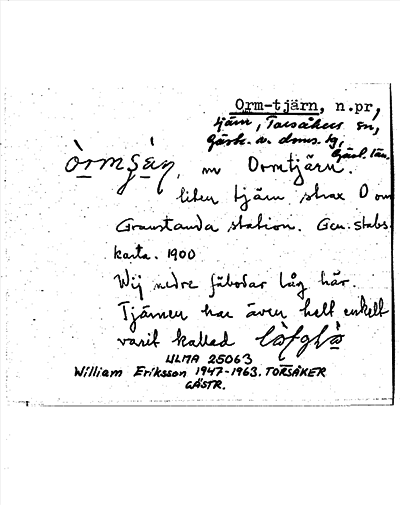 Orm-tjärn, n.pr,
tjärn, Torsåkers sn,
Gästr. v. doms. tg,
Gävl. län.
òrmʃä̀ɳ, nu Ormtjärn.
liten tjärn strax O om
Granstanda station. Gen. stabs.
karta. 1900
Wij nedre fäbodar låg här.
Tjärnen har även helt enkelt
varit kallad
ULMA 25063
William Eriksson 1947-1963. TORSÅKER
GÄSTR.